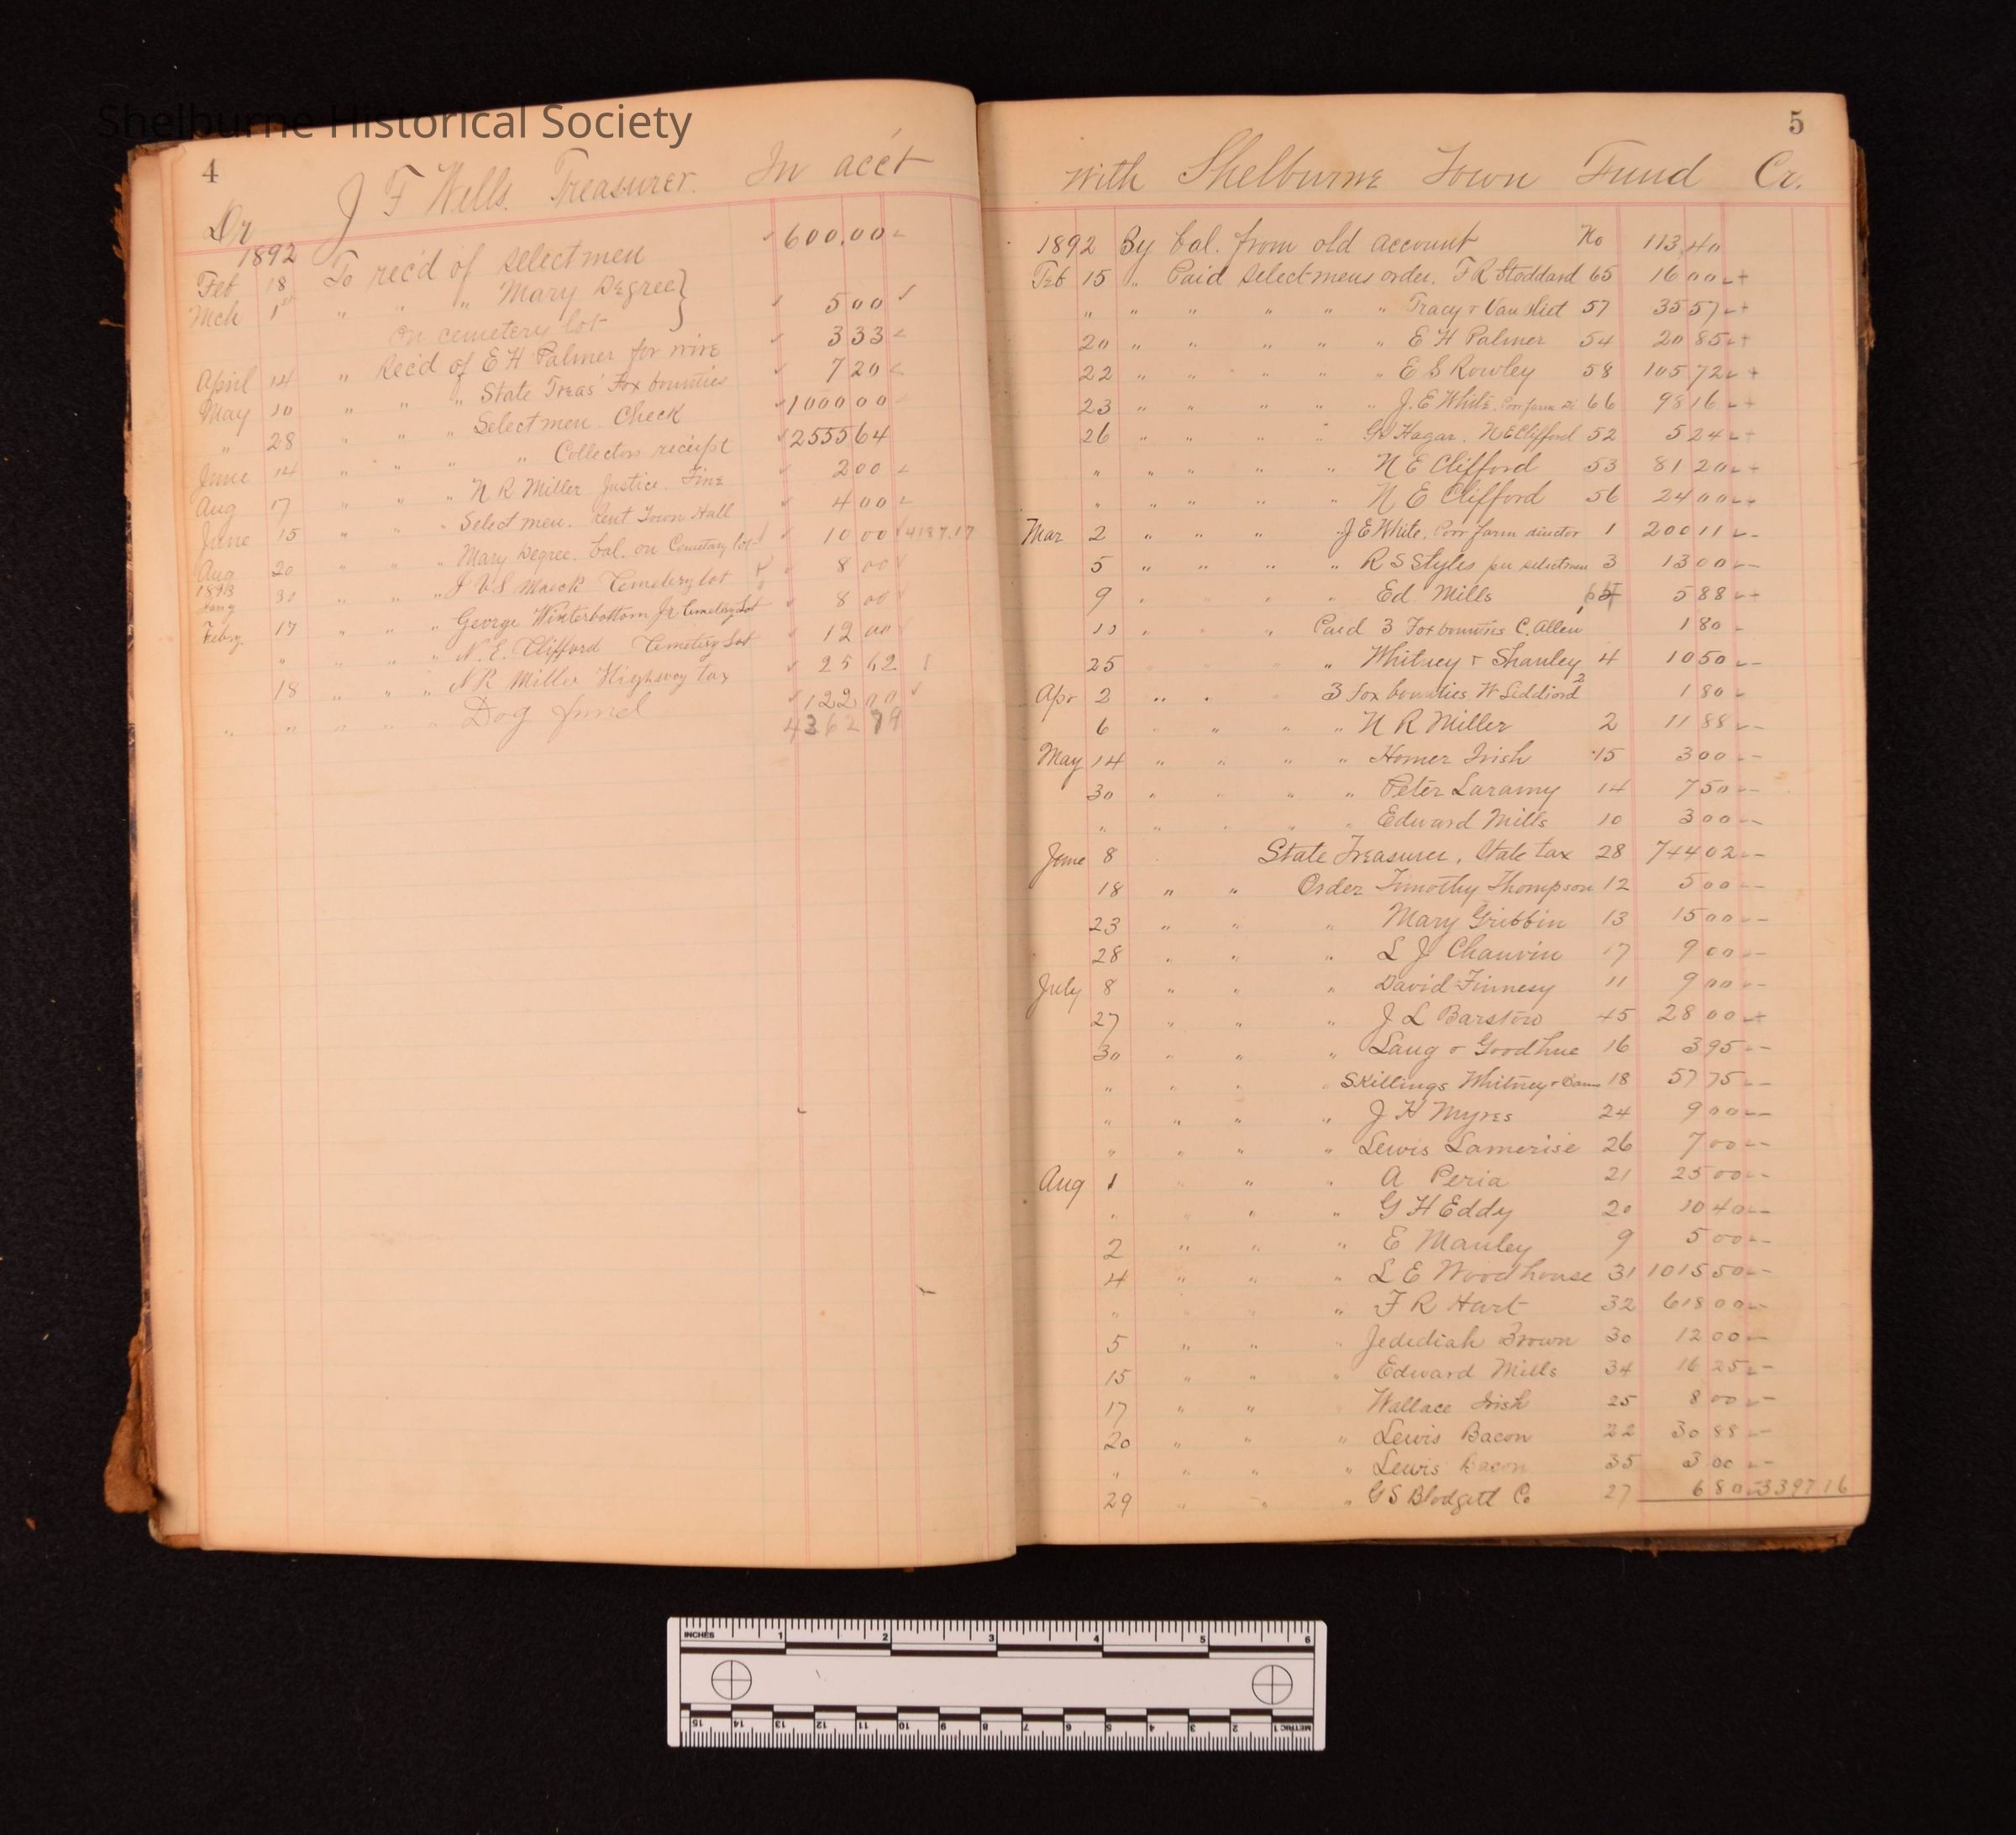 Shelburne Historical Society
4
J F Wells. Treasurer. In acc't
Dr
1892
Feb 18 To rec'd of selectmen 600.00
Mch 1st " " " Mary Degree } 500
on cemetery lot
April 14 " Rec'd of E H Palmer for wire 333
May 10 " " " State Treas' Fox bounties 720
" 28 " " " Selectmen Check 100000
June 14 " " " " Collectors receipt 255564
Aug 17 " " " N R Miller Justice. Fine 200
June 15 " " " Selectmen. Rent Town Hall 400
Aug 20 " " " Mary Degree. bal. on Cemetary lot 1000 4187.17
1893
31 " " " Cemetery lot 8 00
Feb.y 17 " " " George Winterbottom Jr Cemetery Lot 8 00
" " " " N. E. Clifford Cemetery Lot 12 00
18 " " " N R Miller Highway tax 25 62
" " " " " Dog fund 122 00
4362 79
5
with Shelburne Town Fund Cr.
1892 By bal. from old account No 113,40
Feb 15 " Paid selectmens order. F R Stoddard 65 16 00
" " " " " " Tracy & Van Vliet 57 35 57
20 " " " " " E H Palmer 54 20 85
22 " " " " " E S Rowley 58 105 72
23 " " " " " J. E White. Poor farm Di 66 98 16
26 " " " " Hagar. N E Clifford 52 5 24
" " " " " N E Clifford 53 81 20
" " " " " N E Clifford 56 24 00
Mar 2 " " " " J E White. Poor farm director 1 200 11
5 " " " " R S Styles per selectmen 3 13 00
9 " " " " Ed Mills 5 88
10 " " Paid 3 Fox bounties C. Allen 1 80
25 " " " Whitney & Shanley 4 10 50
Apr 2 " " 3 fox bounties W Siddiord 1 80
6 " " " " N R Miller 2 11 88
May 14 " " " " Homer Irish 15 3 00
30 " " " " Peter Laramy 14 7 50
" " " " " Edward Mills 10 3 00
June 8 State Treasurer, State tax 28 744 02
18 " " Order Timothy Thompson 12 5 00
23 " " " Mary Gribbin 13 15 00
28 " " " L J Chauvin 17 9 00
July 8 " " " David Finnesy 11 9 00
27 " " " J L Barstow 45 28 00
30 " " " Laug & Goodhue 16 3 95
" " " " Skillings Whitney & Barns 18 57 75
" " " " J H Myres 24 9 00
" " " " Lewis Lamerise 26 7 00
Aug 1 " " " A Peria 21 25 00
" " " " G H Eddy 20 10 40
2 " " " E Manley 9 5 00
4 " " " L E Woodhouse 31 1015 50
" " " " F R Hart 32 618 00
5 " " " Jedediah Brown 30 12 00
15 " " " Edward Mills 34 16 25
17 " " Wallace Irish 25 8 00
20 " " " Lewis Bacon 22 30 88
" " " " Lewis Bacon 35 3 00
29 " " " G S Blodgett Co 27 6 80 3397 16
INCHES 1 2 3 4 5 6
METRIC 1 2 3 4 5 6 7 8 9 10 11 12 13 14 15